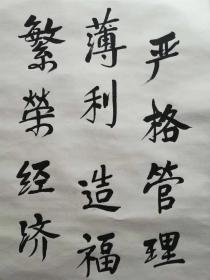 严格管理
薄利造福
繁荣经济